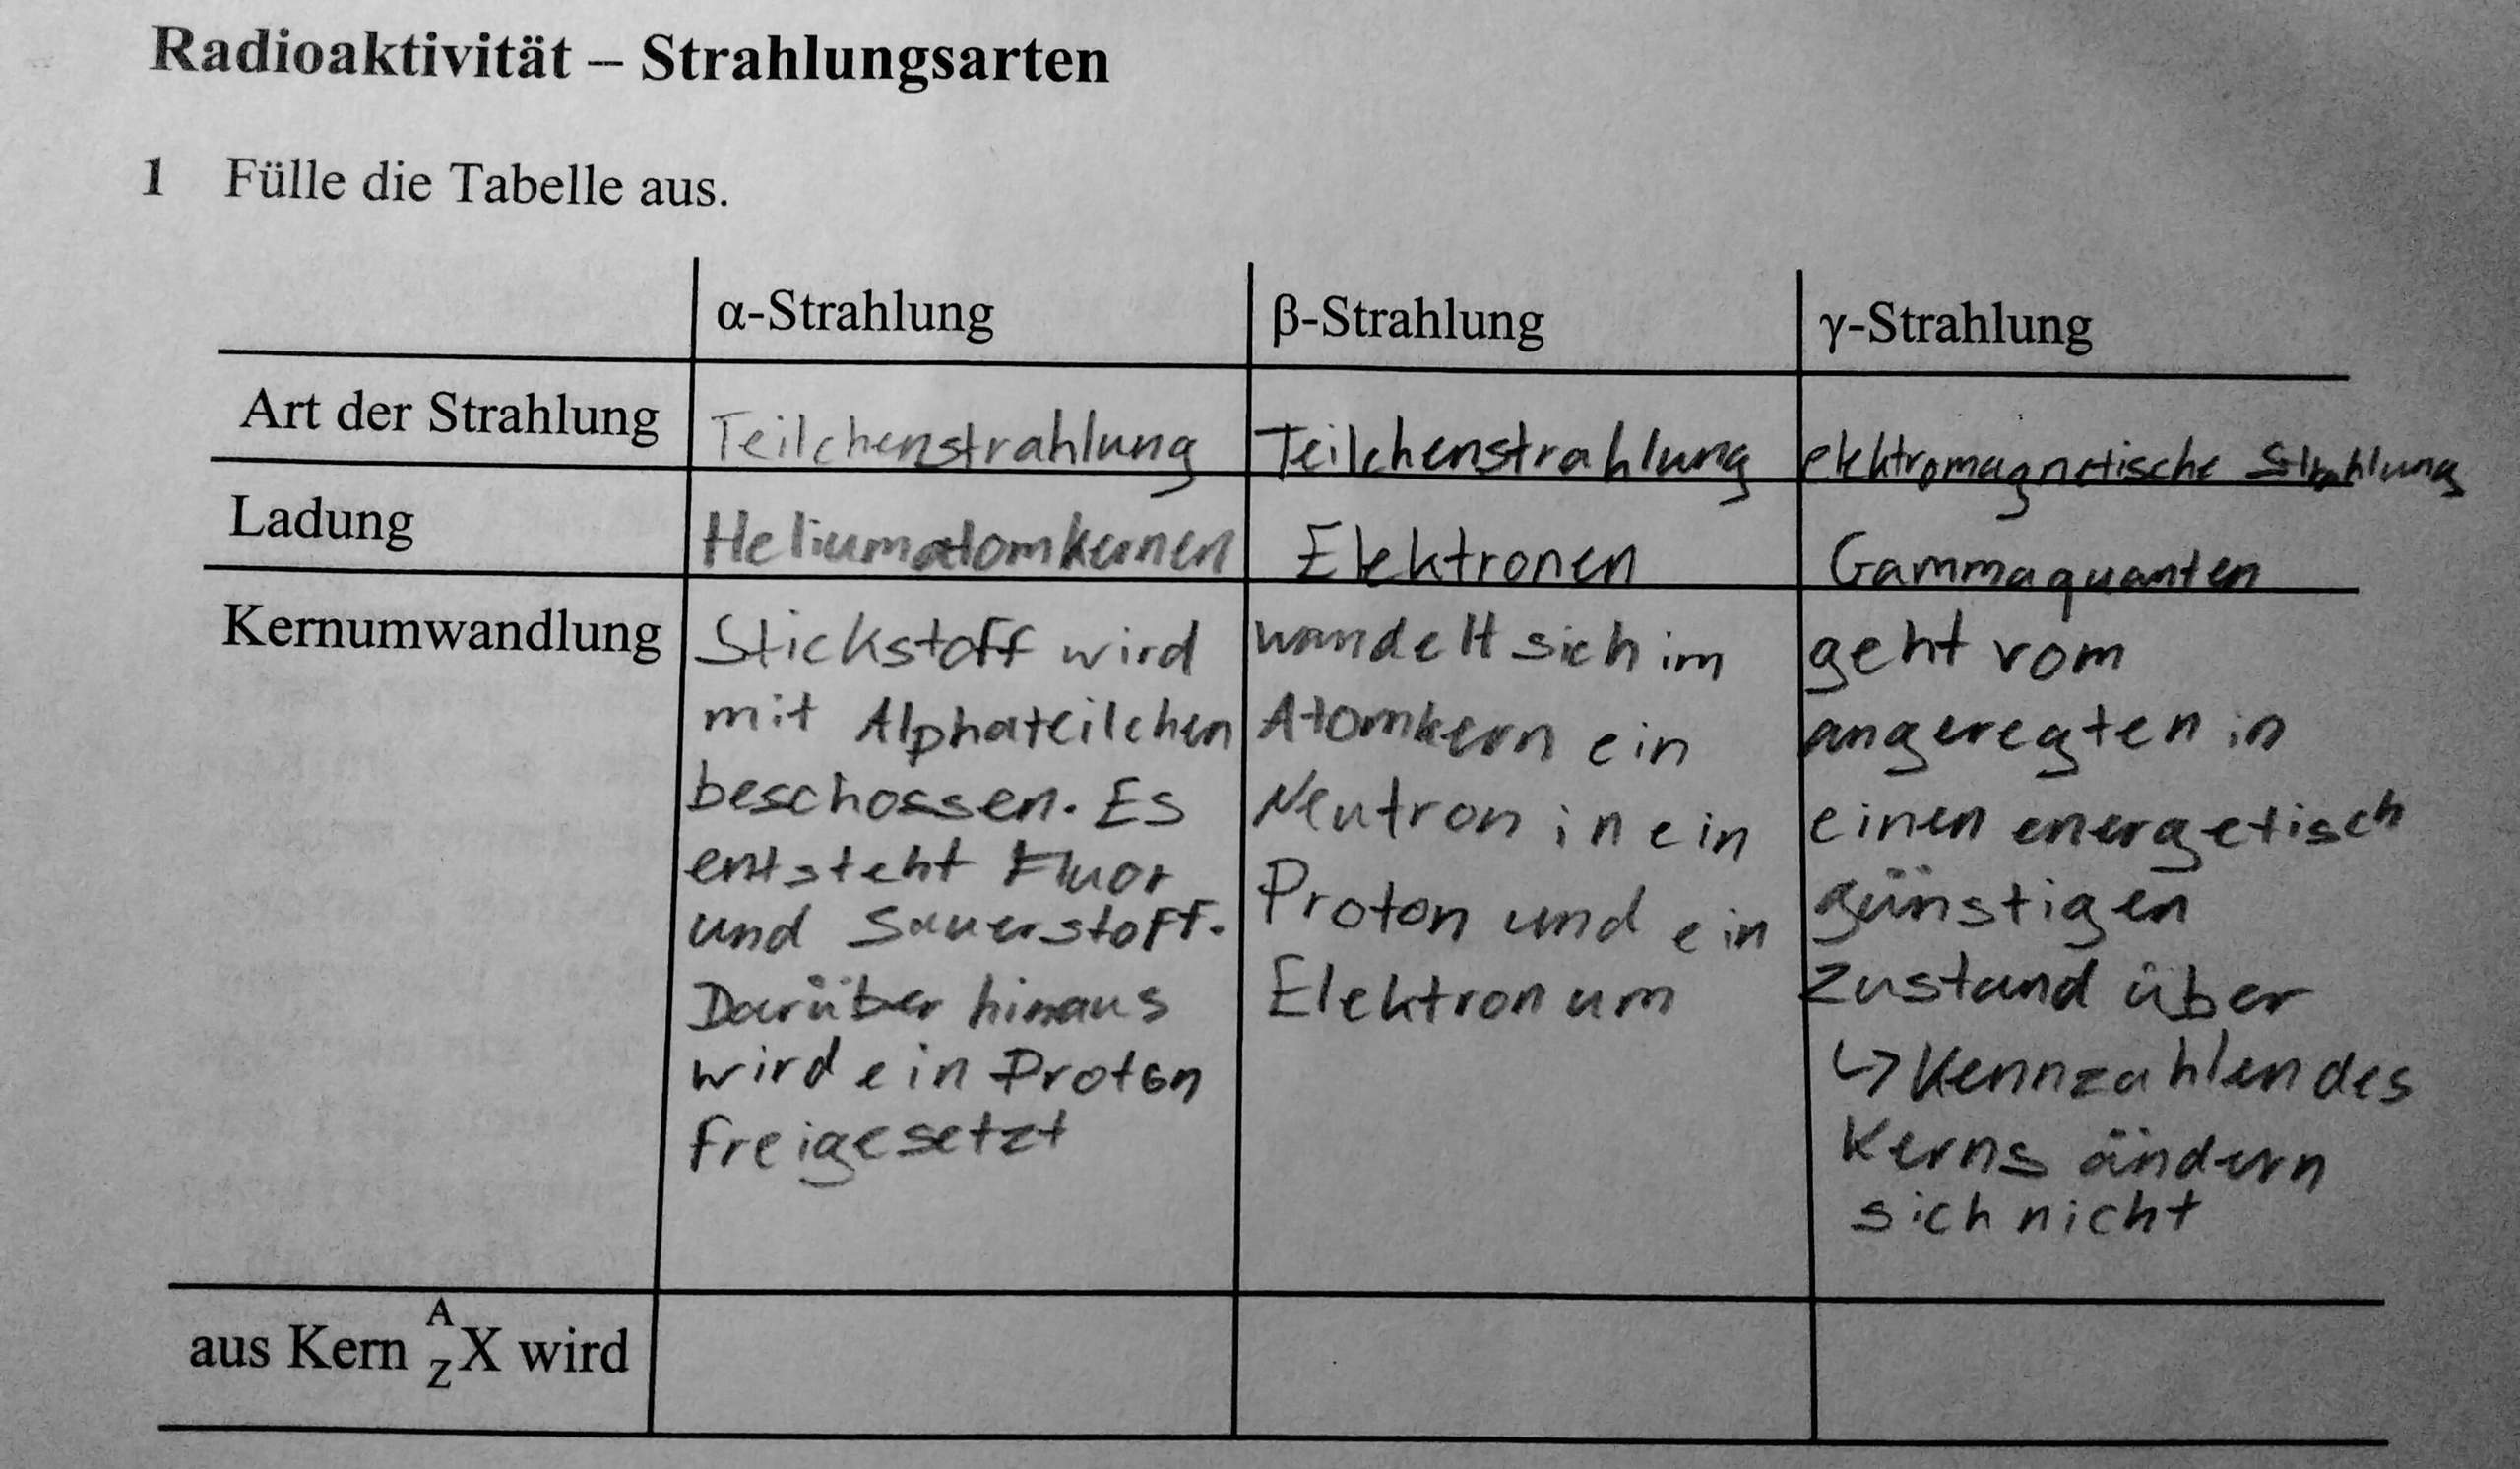 Radioaktivität – Strahlungsarten
1 Fülle die Tabelle aus.
α-Strahlung β-Strahlung γ-Strahlung
Art der Strahlung Teilchenstrahlung Teilchenstrahlung elektromagnetische Strahlung
Ladung Heliumatomkernen Elektronen Gammaquanten
Kernumwandlung
Stickstoff wird
mit Alphateilchen
beschossen. Es
entsteht Fluor
und Sauerstoff.
Darüber hinaus
wird ein Proton
freigesetzt
wandelt sich im
Atomkern ein
Neutron in ein
Proton und ein
Elektron um
geht vom
angeregten in
einen energetisch
günstigen
Zustand über
↳ Kennzahlen des
Kerns ändern
sich nicht
aus Kern ᴬ_ZX wird